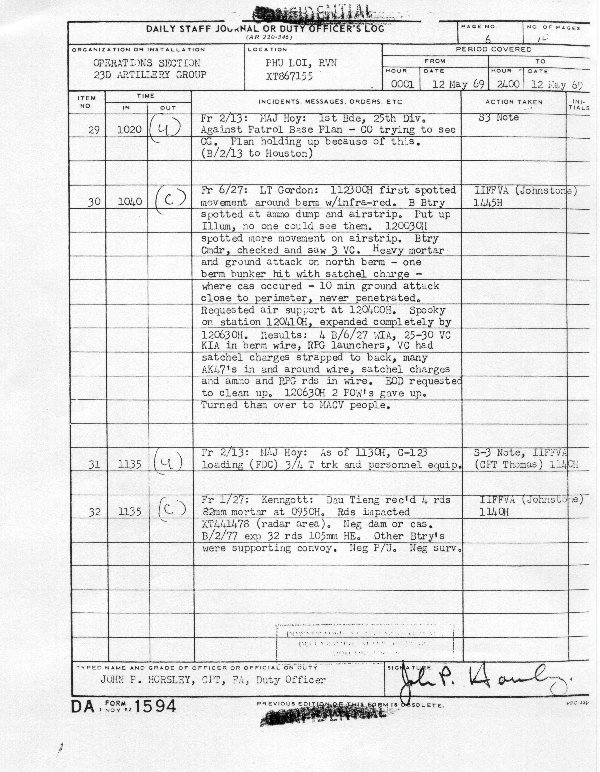 CONFIDENTIAL
DAILY STAFF JOURNAL OR DUTY OFFICER'S LOG
(AR 220-346)
PAGE NO. 6
NO OF PAGES
ORGANIZATION OR INSTALLATION
OPERATIONS SECTION
23D ARTILLERY GROUP
LOCATION
PHU LOI, RVN
XT867155
PERIOD COVERED
FROM TO
HOUR DATE HOUR DATE
0001 12 May 69 2400 12 May 69
ITEM NO. TIME IN OUT INCIDENTS, MESSAGES, ORDERS, ETC ACTION TAKEN INI- TIALS
29 1020 (4) Fr 2/13: MAJ Hoy: 1st Bde, 25th Div. S3 Note
Against Patrol Base Plan - CO trying to see
CG. Plan holding up because of this.
(B/2/13 to Houston)
30 1040 (C) Fr 6/27: LT Gordon: 112300H first spotted IIFFVA (Johnstone)
movement around berm w/infra-red. B Btry 1445H
spotted at ammo dump and airstrip. Put up
Illum, no one could see them. 120030H
spotted more movement on airstrip. Btry
Cmdr, checked and saw 3 VC. Heavy mortar
and ground attack on north berm - one
berm bunker hit with satchel charge -
where cas occured - 10 min ground attack
close to perimeter, never penetrated.
Requested air support at 120400H. Spooky
on station 120410H, expended completely by
120630H. Results: 4 B/6/27 WIA, 25-30 VC
KIA in berm wire, RPG launchers, VC had
satchel charges strapped to back, many
AK47's in and around wire, satchel charges
and ammo and RPG rds in wire. EOD requested
to clean up. 120630H 2 POW's gave up.
Turned them over to MACV people.
31 1135 (4) Fr 2/13: MAJ Hoy: As of 1130H, C-123 S-3 Note, IIFFVA
loading (FDC) 3/4 T trk and personnel equip. (CPT Thomas) 1140H
32 1135 (C) Fr 1/27: Kenngott: Dau Tieng rec'd 4 rds IIFFVA (Johnstone)
82mm mortar at 0950H. Rds impacted 1140H
XT441478 (radar area). Neg dam or cas.
B/2/77 exp 32 rds 105mm HE. Other Btry's
were supporting convoy. Neg P/U. Neg surv.
TYPED NAME AND GRADE OF OFFICER OR OFFICIAL ON DUTY
JOHN P. HORSLEY, CPT, FA, Duty Officer
SIGNATURE
John P. Horsley
DA FORM 1594
PREVIOUS EDITION OF THIS FORM IS OBSOLETE.
CONFIDENTIAL